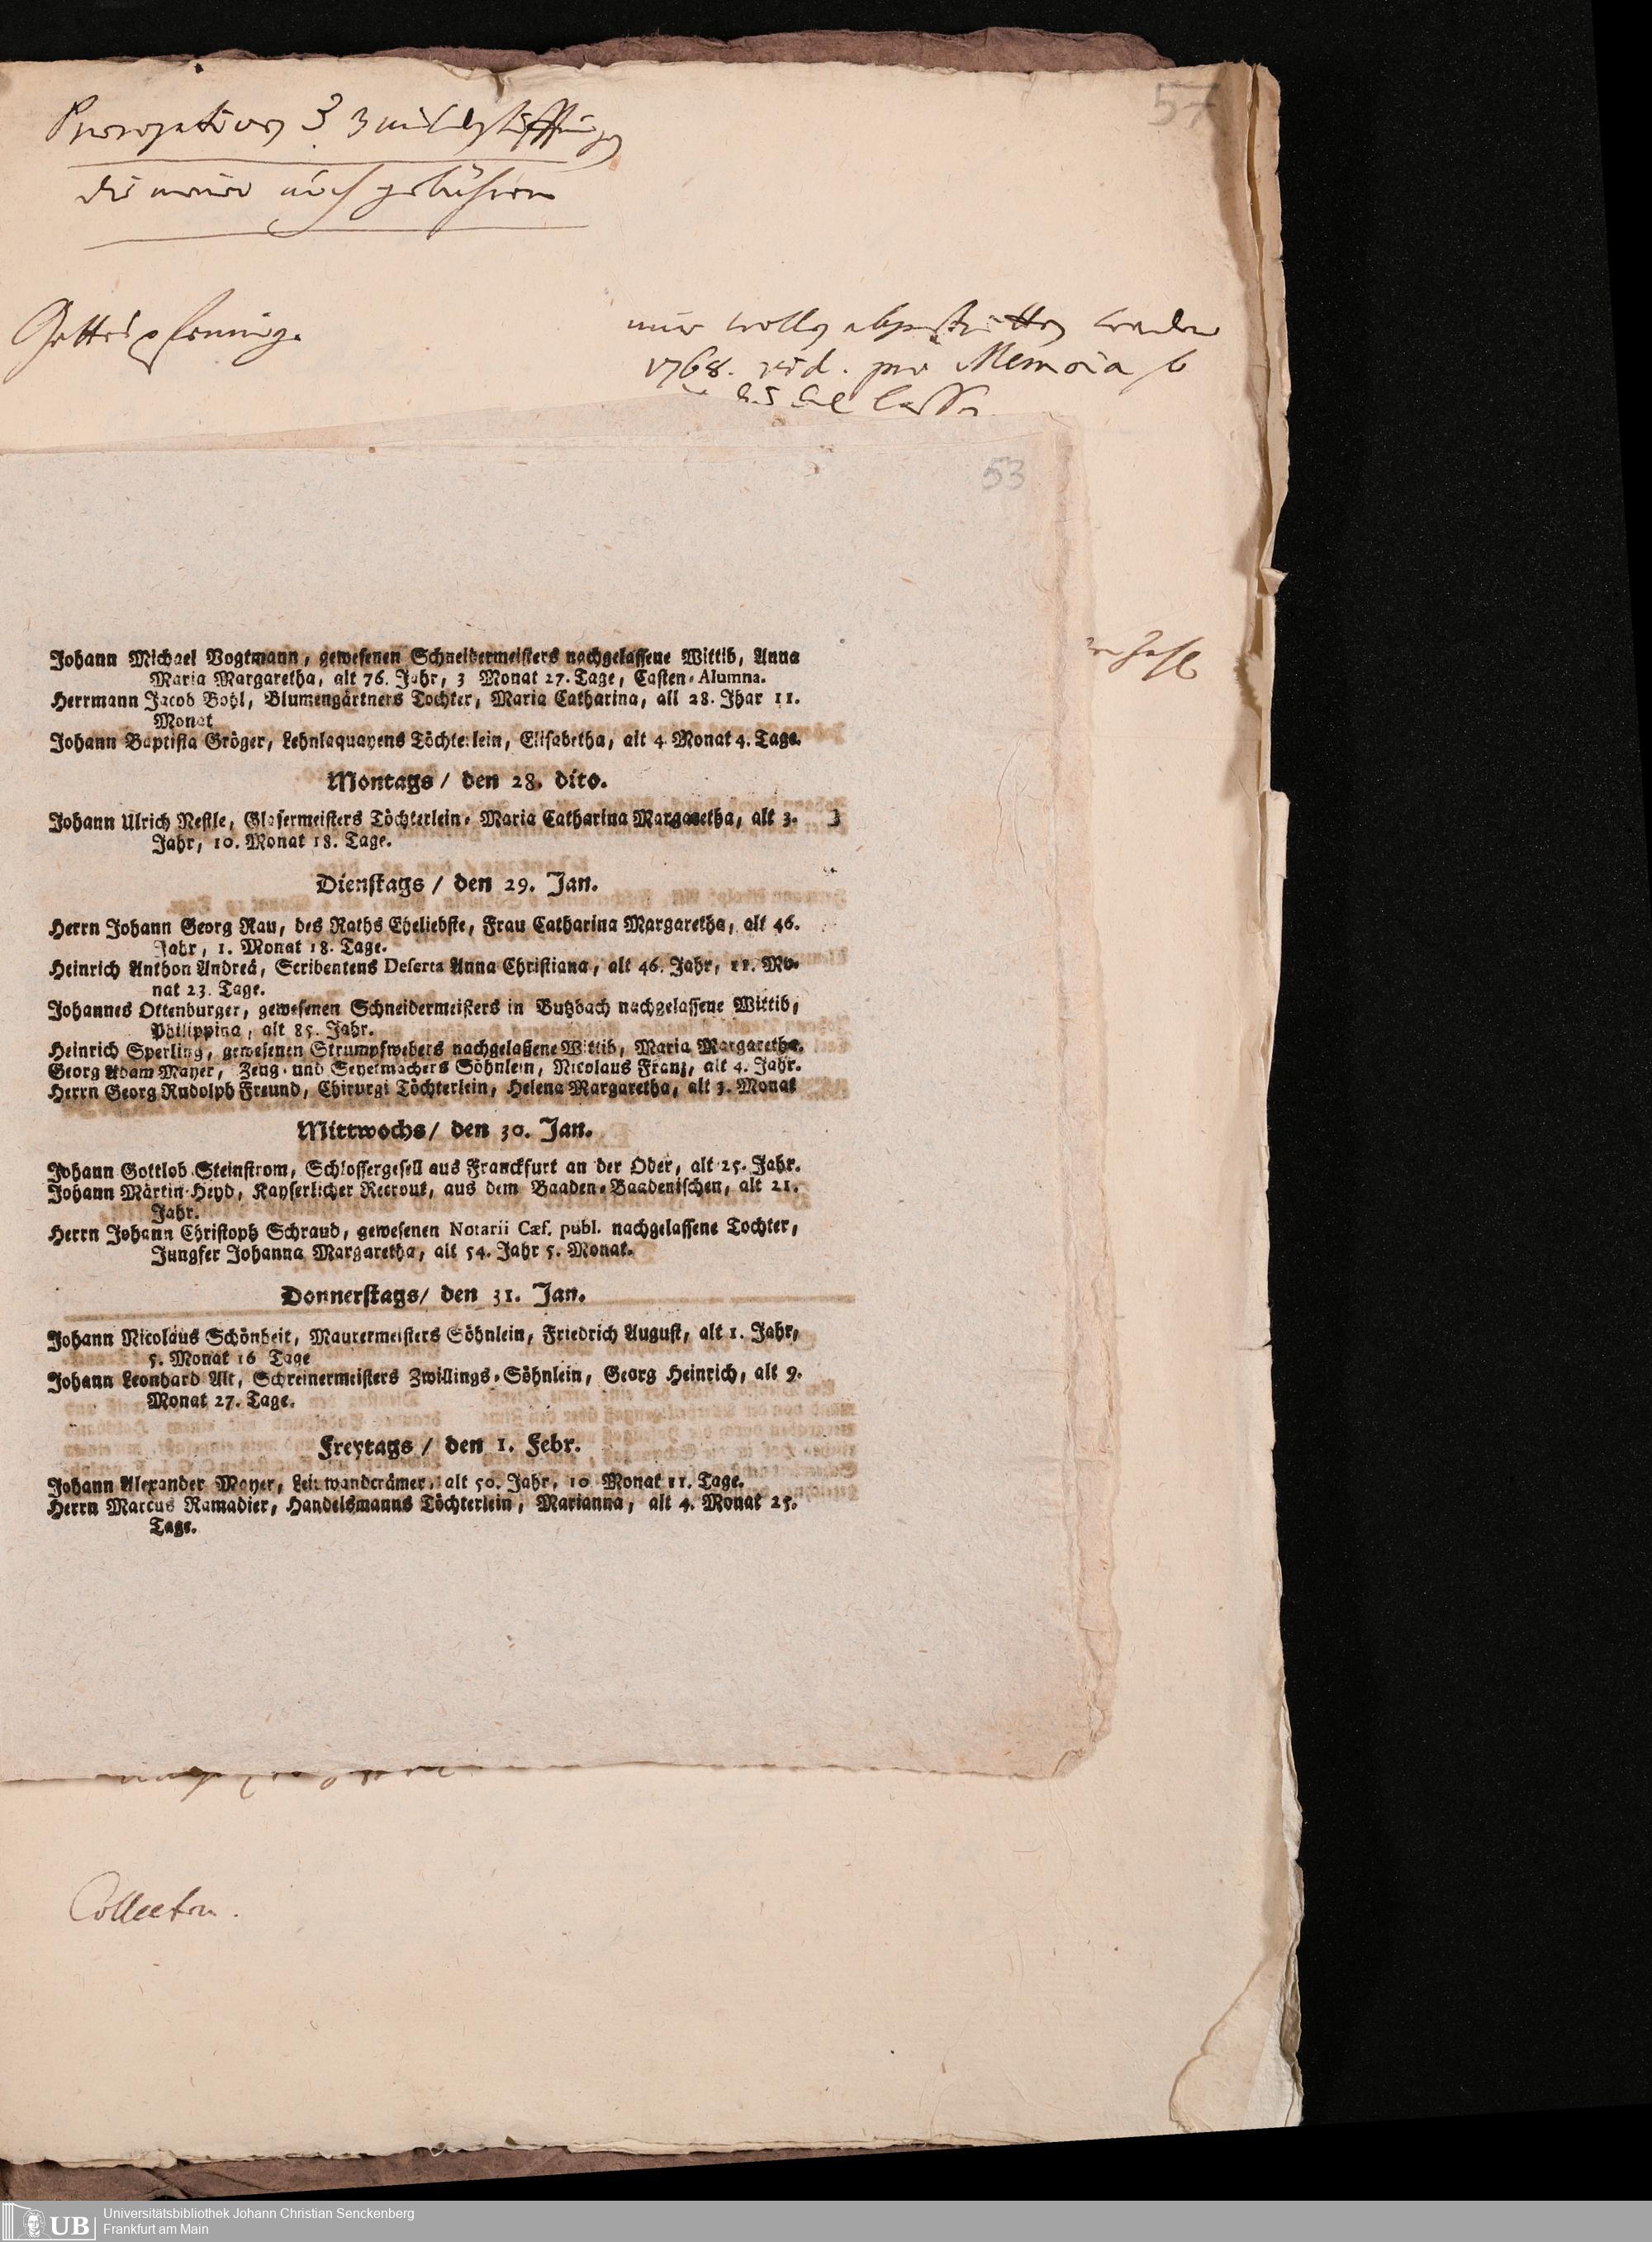 57
die mir auch gebühren
Gottespfennig.
1768. vid. pro Memoria
53
Johann Michael Vogtmann, gewesenen Schneidermeisters nachgelassene Wittib, Anna
Maria Margaretha, alt 76. Jahr, 3 Monat 27. Tage, Casten-Alumna.
Herrmann Jacob Bohl, Blumengärtners Tochter, Maria Catharina, all 28. Jhar 11.
Monat
Johann Baptista Gröger, Lehnlaquayens Töchterlein, Elisabetha, alt 4. Monat 4. Tage.
Montags / den 28. dito.
Johann Ulrich Nestle, Glasermeisters Töchterlein, Maria Catharina Margaretha, alt 3.
Jahr, 10. Monat 18. Tage.
Dienstags / den 29. Jan.
Herrn Johann Georg Rau, des Raths Eheliebste, Frau Catharina Margaretha, alt 46.
Jahr, 1. Monat 18. Tage.
Heinrich Anthon Andreä, Scribentens Deserta Anna Christiana, alt 46. Jahr, 11. Mo-
nat 23. Tage.
Johannes Ottenburger, gewesenen Schneidermeisters in Butzbach nachgelassene Wittib,
Philippina, alt 85. Jahr.
Heinrich Sperling, gewesenen Strumpfwebers nachgelaßene Wittib, Maria Margaretha.
Georg Adam Mayer, Zeug- und Seyetmachers Söhnlein, Nicolaus Franz, alt 4. Jahr.
Herrn Georg Rudolph Freund, Chirurgi Töchterlein, Helena Margaretha, alt 3. Monat
Mittwochs / den 30. Jan.
Johann Gottlob Steinstrom, Schlossergesell aus Franckfurt an der Oder, alt 25. Jahr.
Johann Martin Heyd, Kayserlicher Recrout, aus dem Baaden-Baadenischen, alt 21.
Jahr.
Herrn Johann Christoph Schraud, gewesenen Notarii Cæs. publ. nachgelassene Tochter,
Jungfer Johanna Margaretha, alt 54. Jahr 5. Monat.
Donnerstags / den 31. Jan.
Johann Nicolaus Schönheit, Maurermeisters Söhnlein, Friedrich August, alt 1. Jahr,
5. Monat 16 Tage
Johann Leonhard Alt, Schreinermeisters Zwillings-Söhnlein, Georg Heinrich, alt 9.
Monat 27. Tage.
Freytags / den 1. Febr.
Johann Alexander Mayer, Leinwandcrämer, alt 50. Jahr, 10 Monat 11. Tage.
Herrn Marcus Ramadier, Handelsmanns Töchterlein, Marianna, alt 4. Monat 25.
Tage.
Collecten.
UB Universitätsbibliothek Johann Christian Senckenberg
Frankfurt am Main